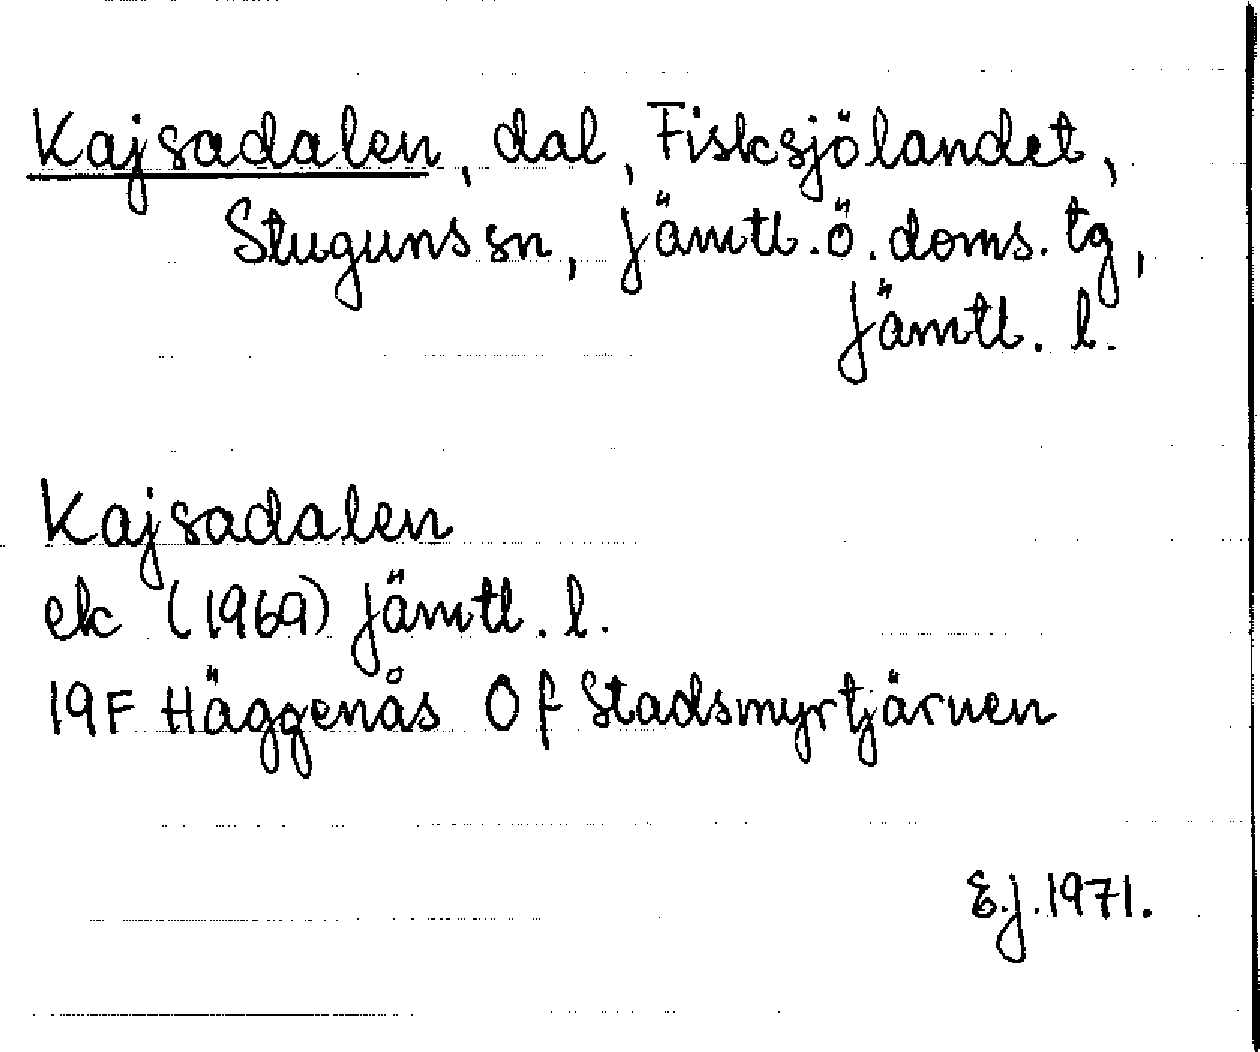 Kajsadalen, dal, Fisksjölandet,
Stuguns sn, Jämtl. ö. doms. tg,
Jämtl. l.
Kajsadalen
ek (1969) Jämtl. l.
19F Häggenås 0 f Stadsmyrtjärnen
E.J. 1971.